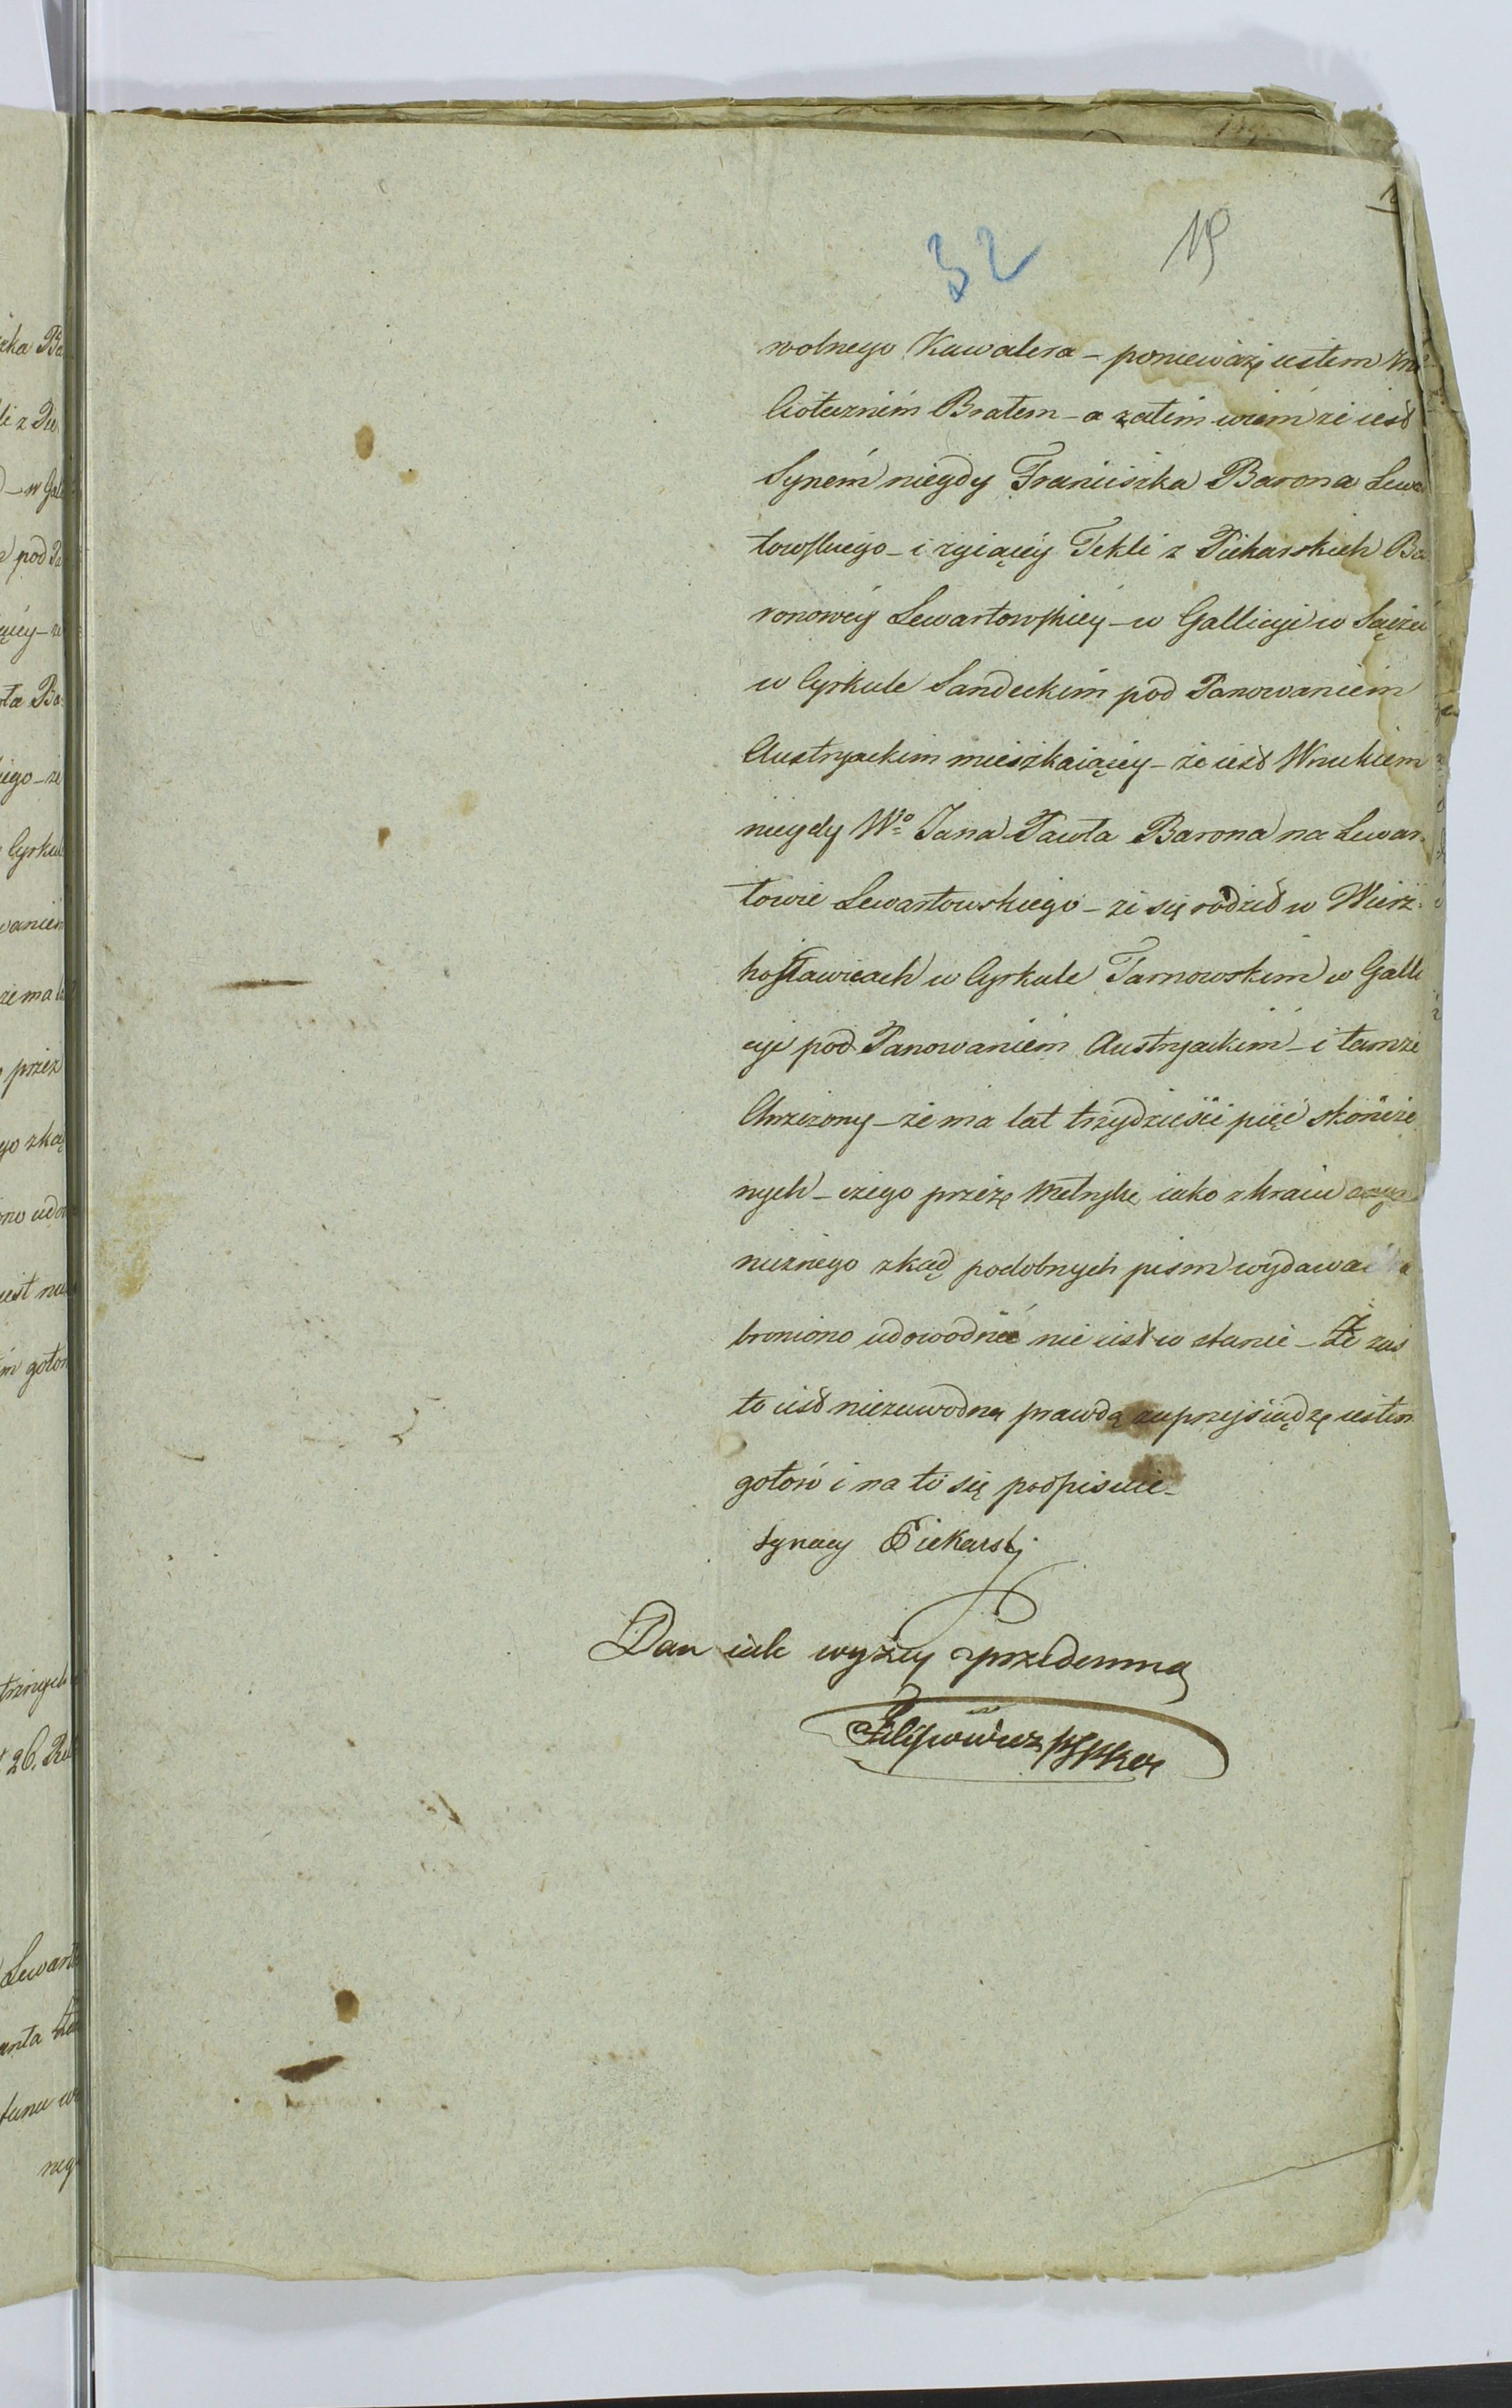 32 19
wolnego Kawalera – ponieważ iestem
Ciotecznim Bratem – a zatim wiem że iest
Synem niegdy Franciszka Barona Lewar
towskiego – i żyiącey Tekli z Piekarskich Ba
ronowéy Lewartowskiey – w Gallicyi w Sączu
w Cyrkule Sandeckim pod Panowaniem
Austryackim mieszkaiącey – że iest Wnukiem
niegdy Wo Jana Pawła Barona na Lewar-
towie Lewartowskiego – że się rodził w Wierz-
hosławicach w Cyrkule Tarnowskim w Galli
cyi pod Panowaniem Austryackim – i tamże
Chrzczony – że ma lat trzydzieści pięć skończo
nych – czego przez Metrykę iako z kraiu
nicznego zkąd podobnych pism wydawać
broniono udowodnić nie iest w stanie – Że zaś
to iest niezawodną prawdą zaprzysiądz iestem
gotów i na to się podpisuie –
Ignacy Piekarski
Dan iak wyżey przedemną
Filipowicz
ka Ba
li z Pie
– w Gal
pod Pa
ącey –
ła Ba
iego – że
Cyrku
waniem
że ma
przez
go zką
no udo
iest na
m gotow
trznych
26.
Lewart